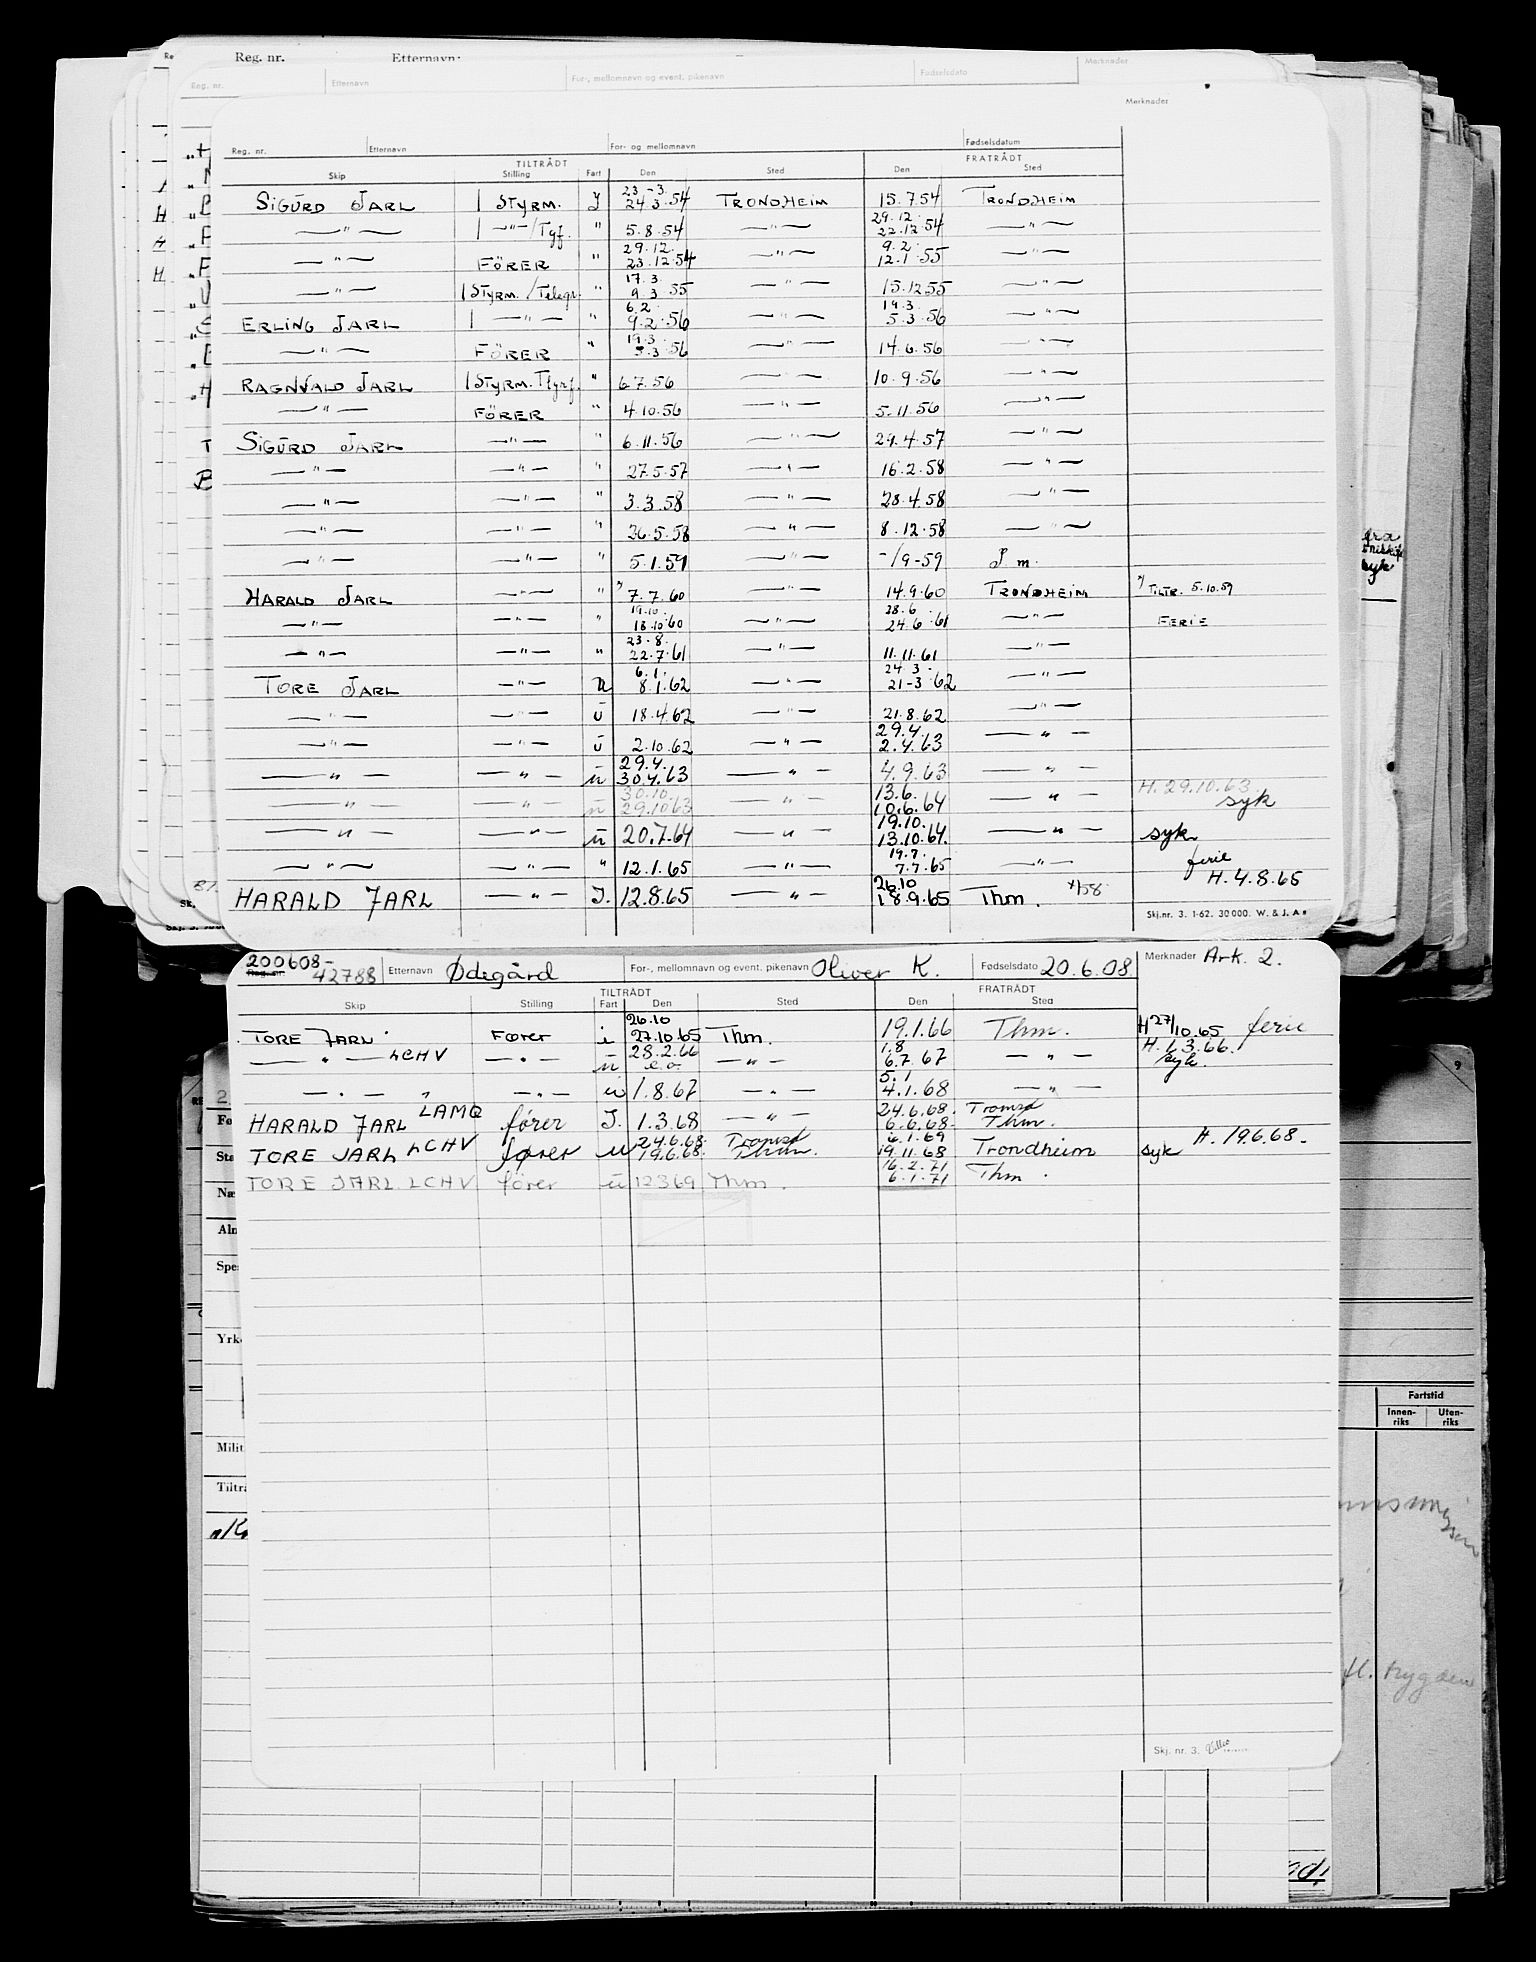 Reg. nr. Etternavn:
Reg. nr. Etternavn For-, mellomnavn og event. pikenavn Fødselsdato Merknader
Merknader
Reg. nr. Etternavn For- og mellomnavn Fødselsdatum
TILTRÅDT FRATRÅDT
Skip Stilling Fart Den Sted Den Sted
SIGURD JARL 1 STYRM. I 23.-3. 24.3.54 TRONDHEIM 15.7.54 TRONDHEIM
—"— 1 —"—/Tgf. " 5.8.54 —"— 29.12. 22.12.54 —"—
—"— FÖRER " 29.12. 23.12.54 —"— 9.2. 12.1.55 —"—
—"— 1 STYRM./Telegr. " 17.3. 9.3.55 —"— 15.12.55 —"—
ERLING JARL 1 —"— " 6.2. 9.2.56 —"— 19.3. 5.3.56 —"—
—"— FÖRER " 19.3. 5.3.56 —"— 14.6.56 —"—
RAGNVALD JARL 1 STYRM. Tlgrf. " 6.7.56 —"— 10.9.56 —"—
—"— FÖRER " 4.10.56 —"— 5.11.56 —"—
SIGURD JARL —"— " 6.11.56 —"— 29.4.57 —"—
—"— —"— " 27.5.57 —"— 16.2.58 —"—
—"— —"— " 3.3.58 —"— 28.4.58 —"—
—"— —"— " 26.5.58 —"— 8.12.58 —"—
—"— —"— " 5.1.59 —"— -/9-59 P.m.
HARALD JARL —"— " *) 7.7.60 —"— 14.9.60 TRONDHEIM *) TILTR. 5.10.59
—"— —"— " 19.10. 18.10.60 —"— 28.6. 24.6.61 —"— FERIE
—"— —"— " 23.8. 22.7.61 —"— 11.11.61 —"—
TORE JARL —"— U 6.1. 8.1.62 —"— 24.3. 21-3.62 —"—
—"— —"— u 18.4.62 —"— 21.8.62 —"—
—"— —"— u 2.10.62 —"— 29.4. 2.4.63 —"—
—"— —"— u 29.4. 30.4.63 —"— 4.9.63 —"—
—"— —"— u 30.10. 29.10.63 —"— 13.6. 10.6.64 —"— H. 29.10.63. syk
—"— —"— u 20.7.64 —"— 19.10. 13.10.64. —"— syk
—"— —"— " 12.1.65 —"— 19.7. 7.7.65 —"— ferie
HARALD JARL —"— I. 12.8.65 —"— 26.10 18.9.65 Thm. */58 H. 4.8.65
Skj.nr. 3. 1-62. 30000. W. & J. A s
200608-
Reg. nr. 42788 Etternavn Ødegård For-, mellomnavn og event. pikenavn Oliver K. Fødselsdato 20.6.08 Merknader Ark. 2.
TILTRÅDT FRATRÅDT
Skip Stilling Fart Den Sted Den Sted
TORE JARL Fører i 26.10 27.10.65 Thm. 19.1.66 Thm. H 27/10.65 ferie
—"— LCHV —"— u 28.2.66 e.o. —"— 1.8 6.7.67 —"— H. 1.3.66. syk.
—"— " —"— u 1.8.67 —"— 5.1 4.1.68 —"—
HARALD JARL LAMQ fører I. 1.3.68 —"— 24.6.68. 6.6.68. Tromsø Thm.
TORE JARL LCHV fører u 24.6.68. 19.6.68. Tromsø Thm. 6.1.69 19.11.68 Trondheim syk H. 19.6.68.
TORE JARL LCHV fører u 12369 Thm. 16.2.71 6.1.71 Thm.
Skj. nr. 3.
Fartstid
Innen-riks Uten-riks
Yrk
Milit
Tiltr
Spe
Aln
Næ
trygden